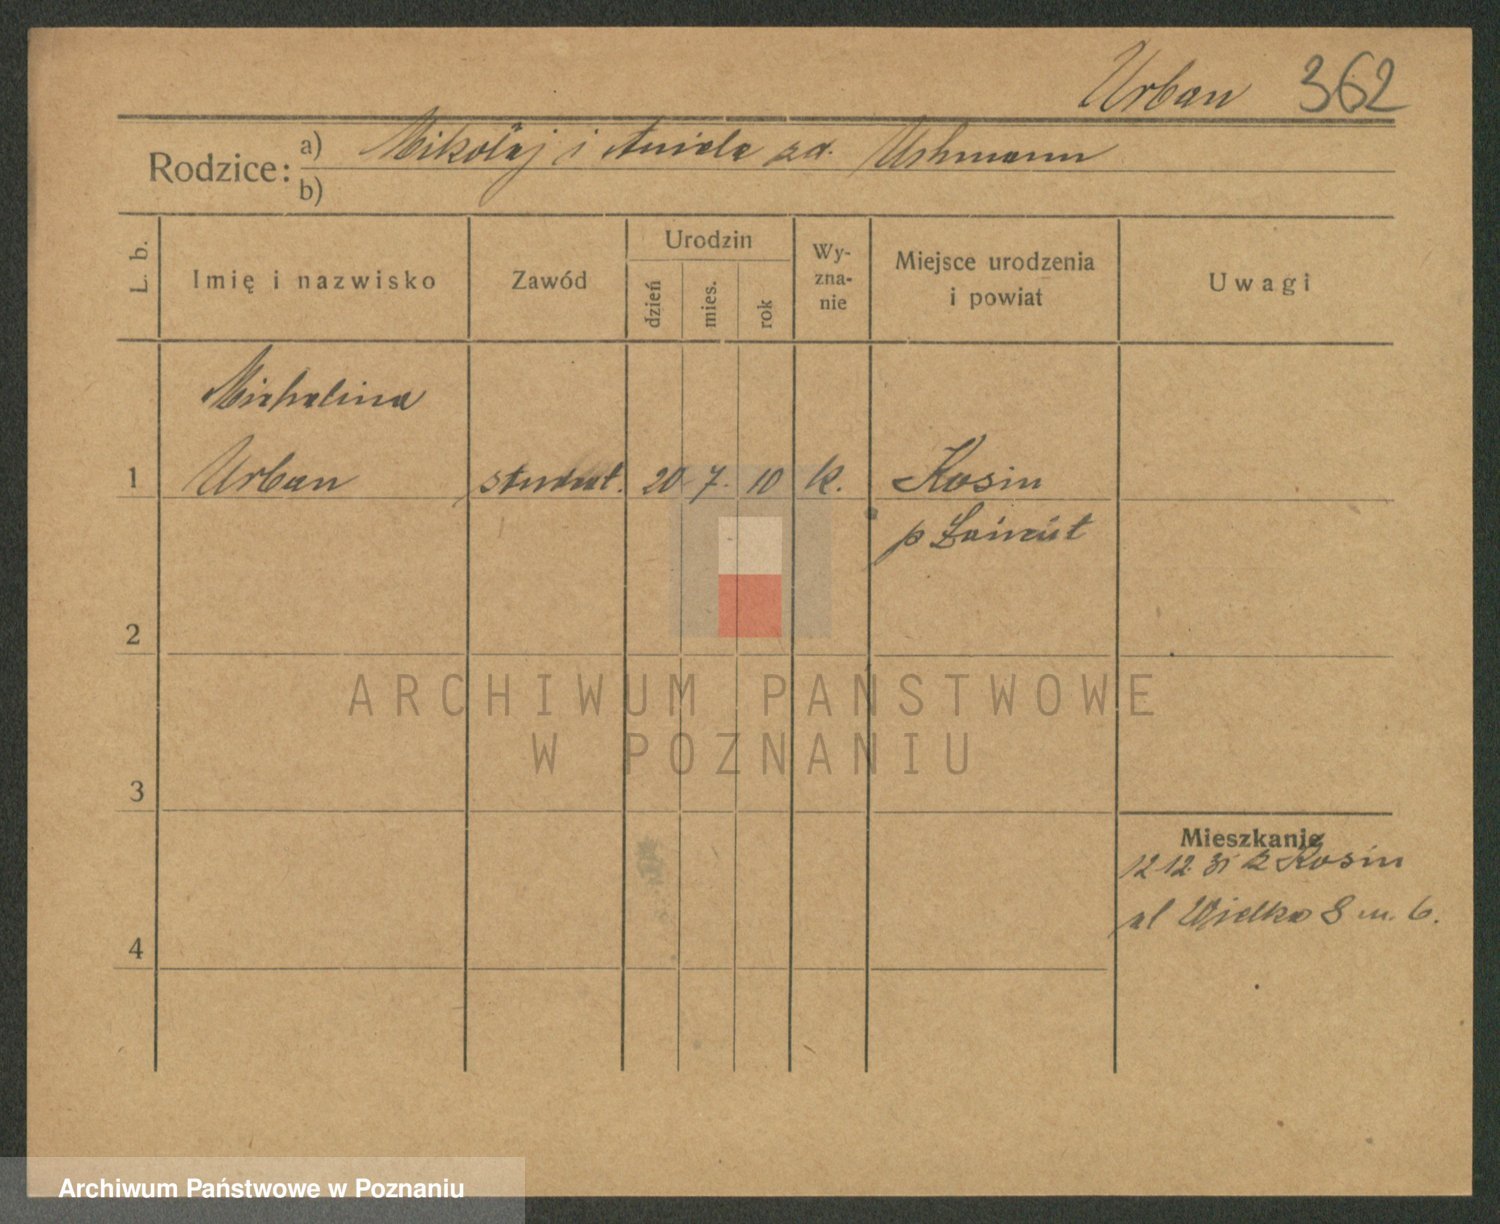 Urban 362
Rodzice: a) Mikołaj i Aniela zd. Uchmann
b)
L. b.
Imię i nazwisko
Zawód
Urodzin
dzień
mies.
rok
Wy-
zna-
nie
Miejsce urodzenia
i powiat
Uwagi
Michalina
1 Urban student. 20 7. 10 k. Kosin
p Łańcut
2
ARCHIWUM PAŃSTWOWE
W POZNANIU
3
Mieszkanie
12 12. 31 z Kosin
4 Wielka 8 m. 6.
Archiwum Państwowe w Poznaniu